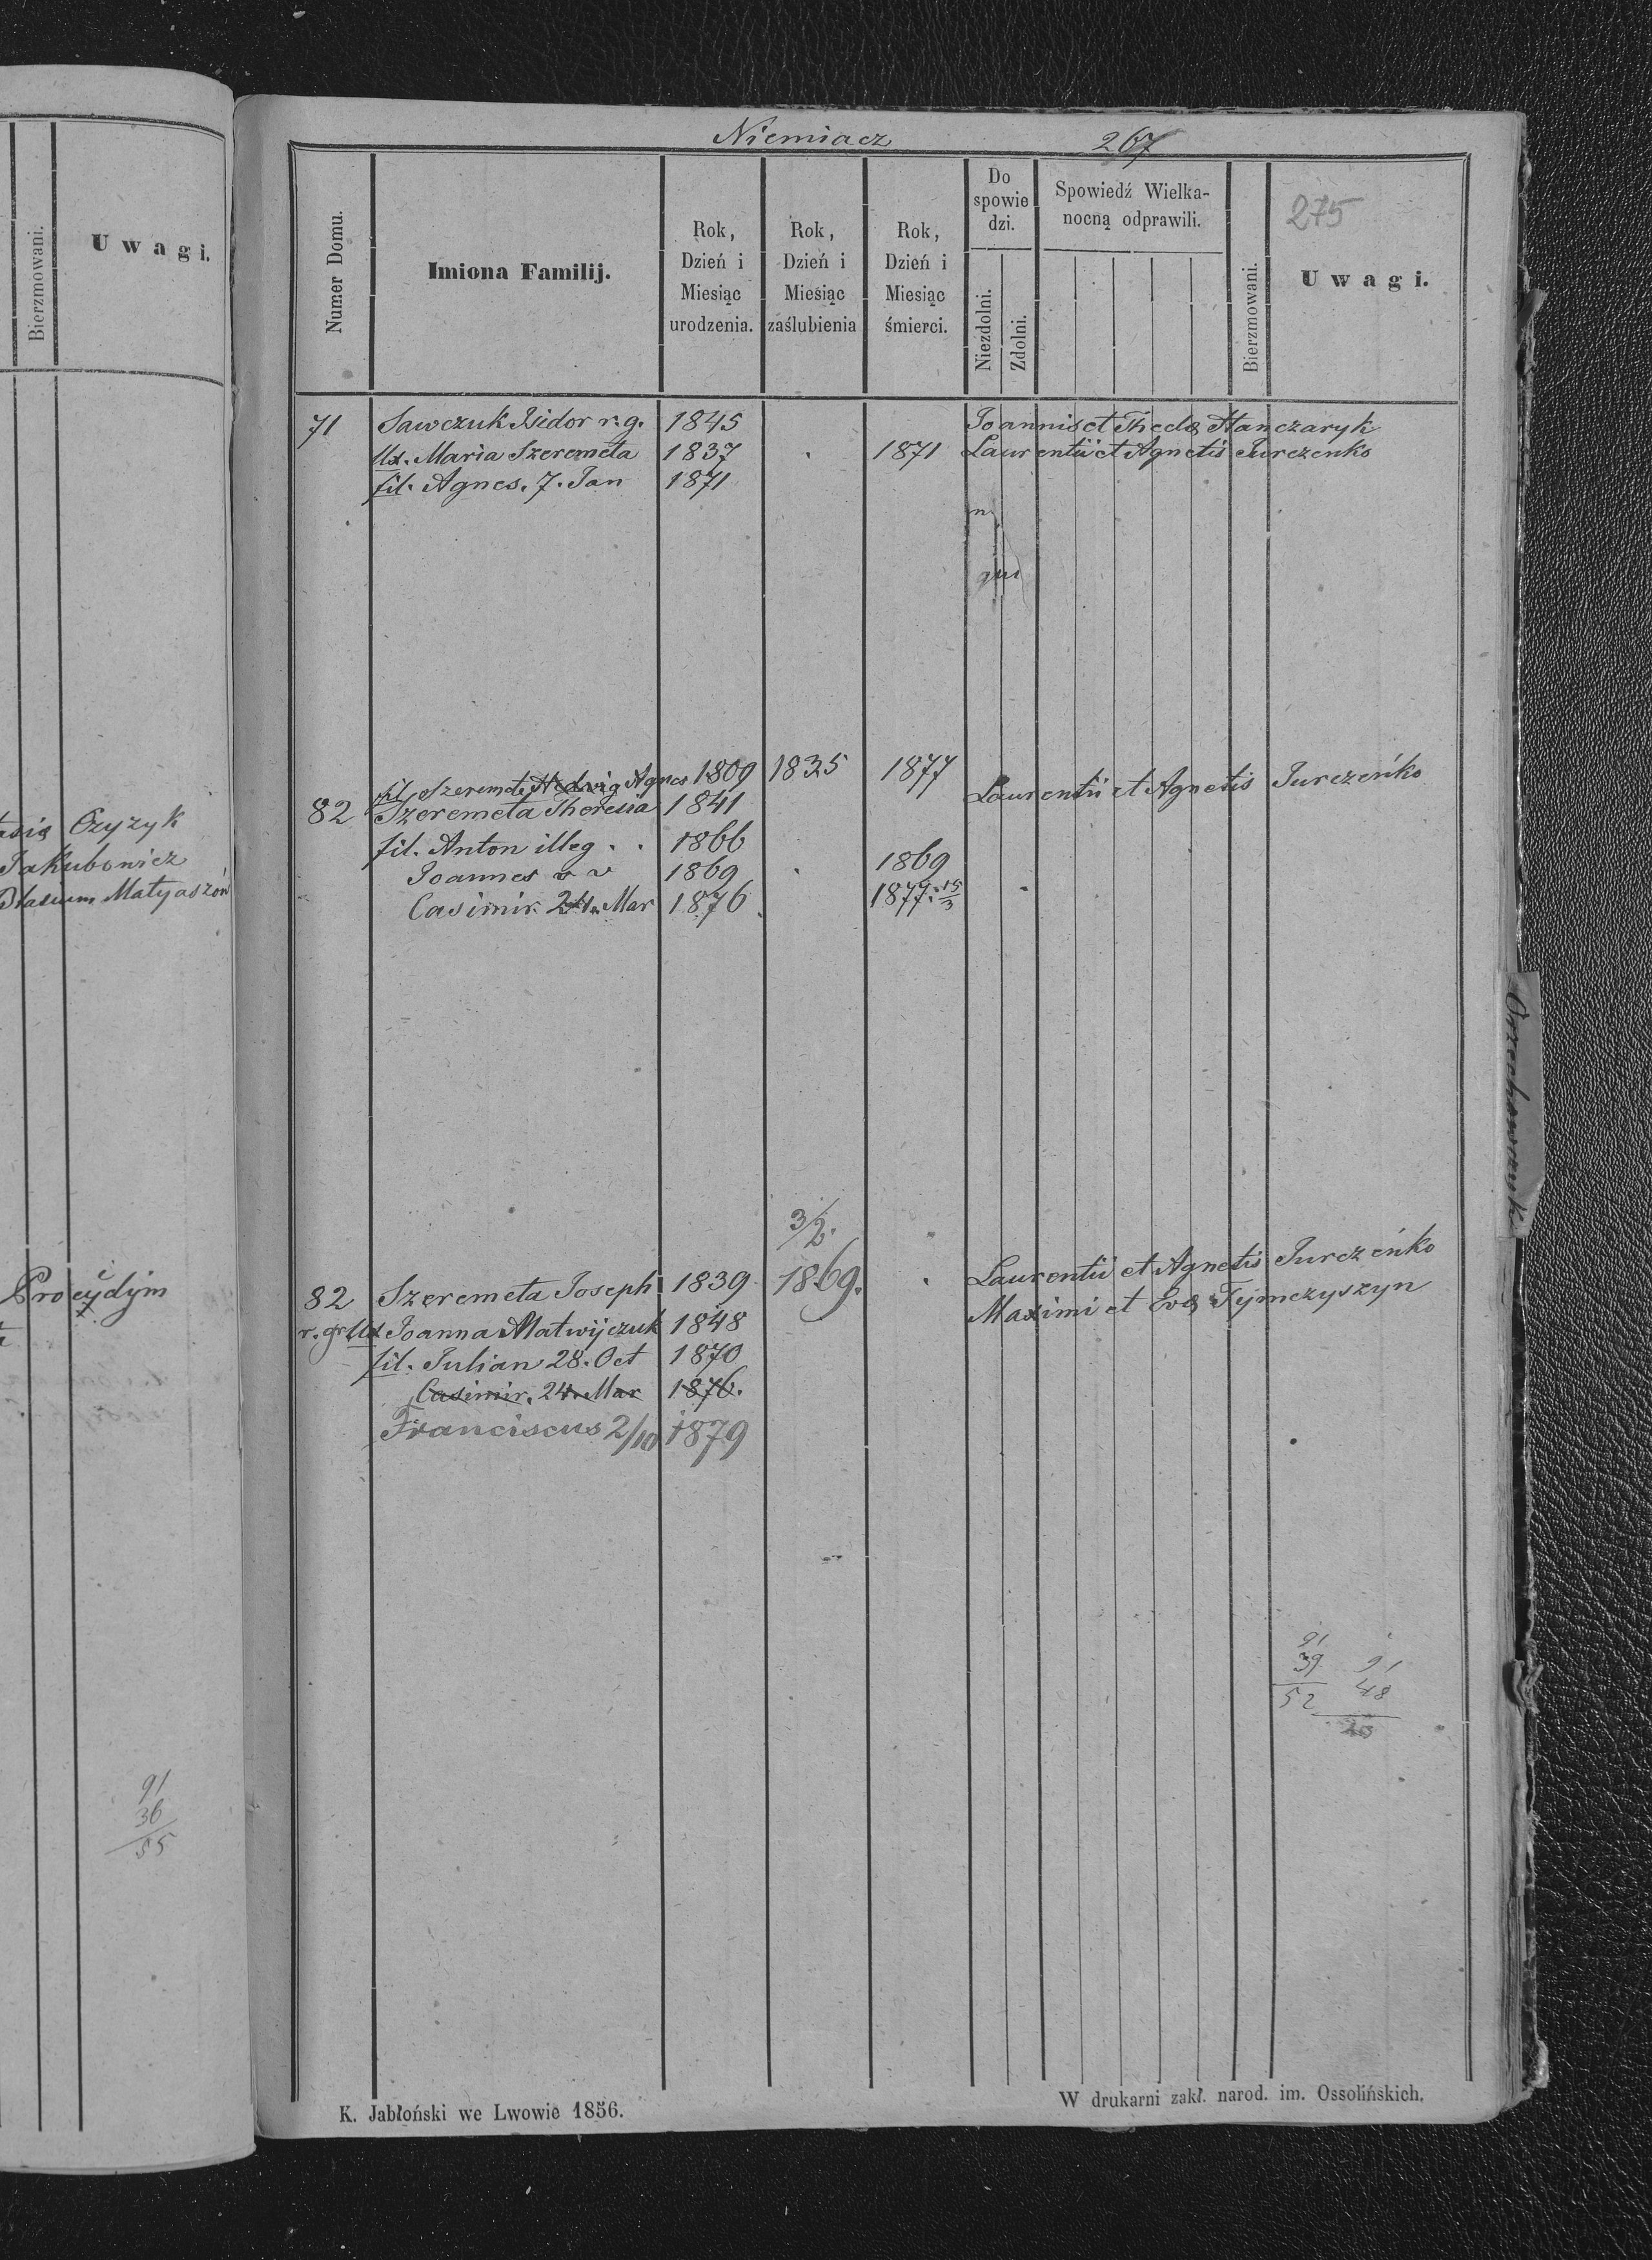 Bierzmowani.
Uwagi.
Czyzyk
Jakubowicz
Matyaszów
Procydym
91
36
55
Niemiacz
267
275
Numer Domu.
Imiona Familij.
Rok, Dzień i Miesiąc urodzenia.
Rok, Dzień i Miesiąc zaślubienia
Rok, Dzień i Miesiąc śmierci.
Do spowie dzi.
Niezdolni.
Zdolni.
Spowiedź Wielka-nocną odprawili.
Bierzmowani.
Uwagi.
71 Sawczuk Isidor r. g. 1845 Joannis et Theclæ Hanczaryk
Ux. Maria Szeremeta 1837 1871 Laurentii et Agnetis Jurczenko
fil. Agnes. 7. Jan 1871
Agnes 1809 1835 1877
82 Szeremeta Theresia 1841 Laurentii et Agnetis Jurczeńko
fil. Anton illeg. 1866
Joannes 1869 1869
Casimir 24. Mar 1876 1877. 15/3
3/2.
82 Szeremeta Joseph 1839 1869. Laurentii et Agnetis Jurczeńko
r. gr Ux Joanna Matwijczuk 1848 Maximi et Evæ Tymczyszyn
fil. Julian 28. Oct 1870
Casimir. 24. Mar 1876.
Franciscus 2/10 1879
91
39 91
52 48
Orzechowczuk
K. Jabłoński we Lwowie 1856.
W drukarni zakł. narod. im. Ossolińskich.